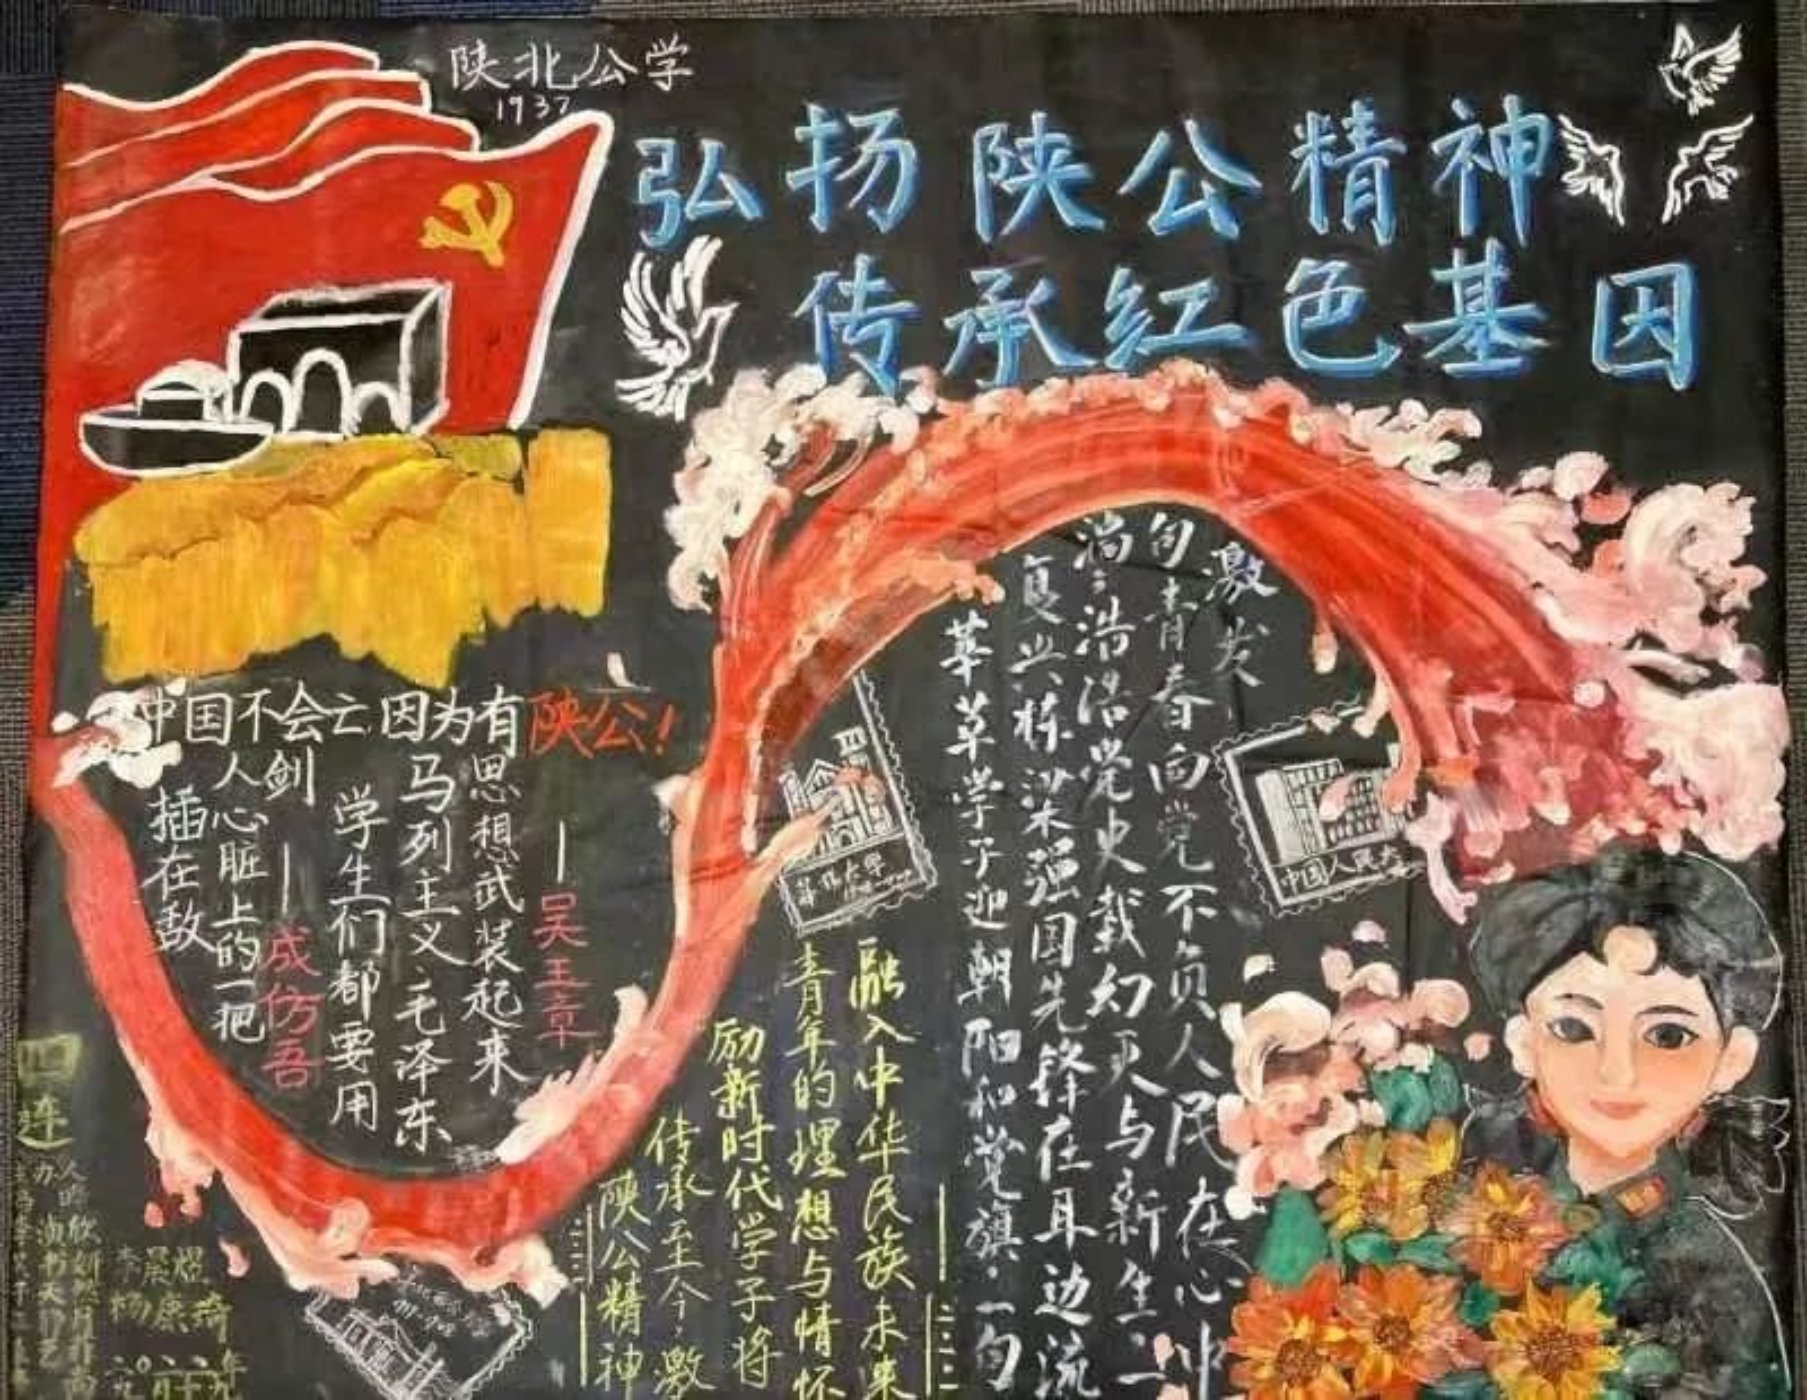 陕北公学
1937
弘扬陕公精神
传承红色基因
中国不会亡因为有陕公!
—吴玉章
思想武装起来
马列主义毛泽东
学生们都要用
—成仿吾
剑
人心脏上的一把
插在敌
激发
句青春向党不负人民在心中
淌淌浩浩党史载幻灭与新生
复兴栋梁强国先锋在耳边流
莘莘学子迎朝阳和党旗一句
中国人民大
融入中华民族未来
青年的理想与情怀
励新时代学子将
传承至今激
陕公精神
四连
李晨煜
杨康琦